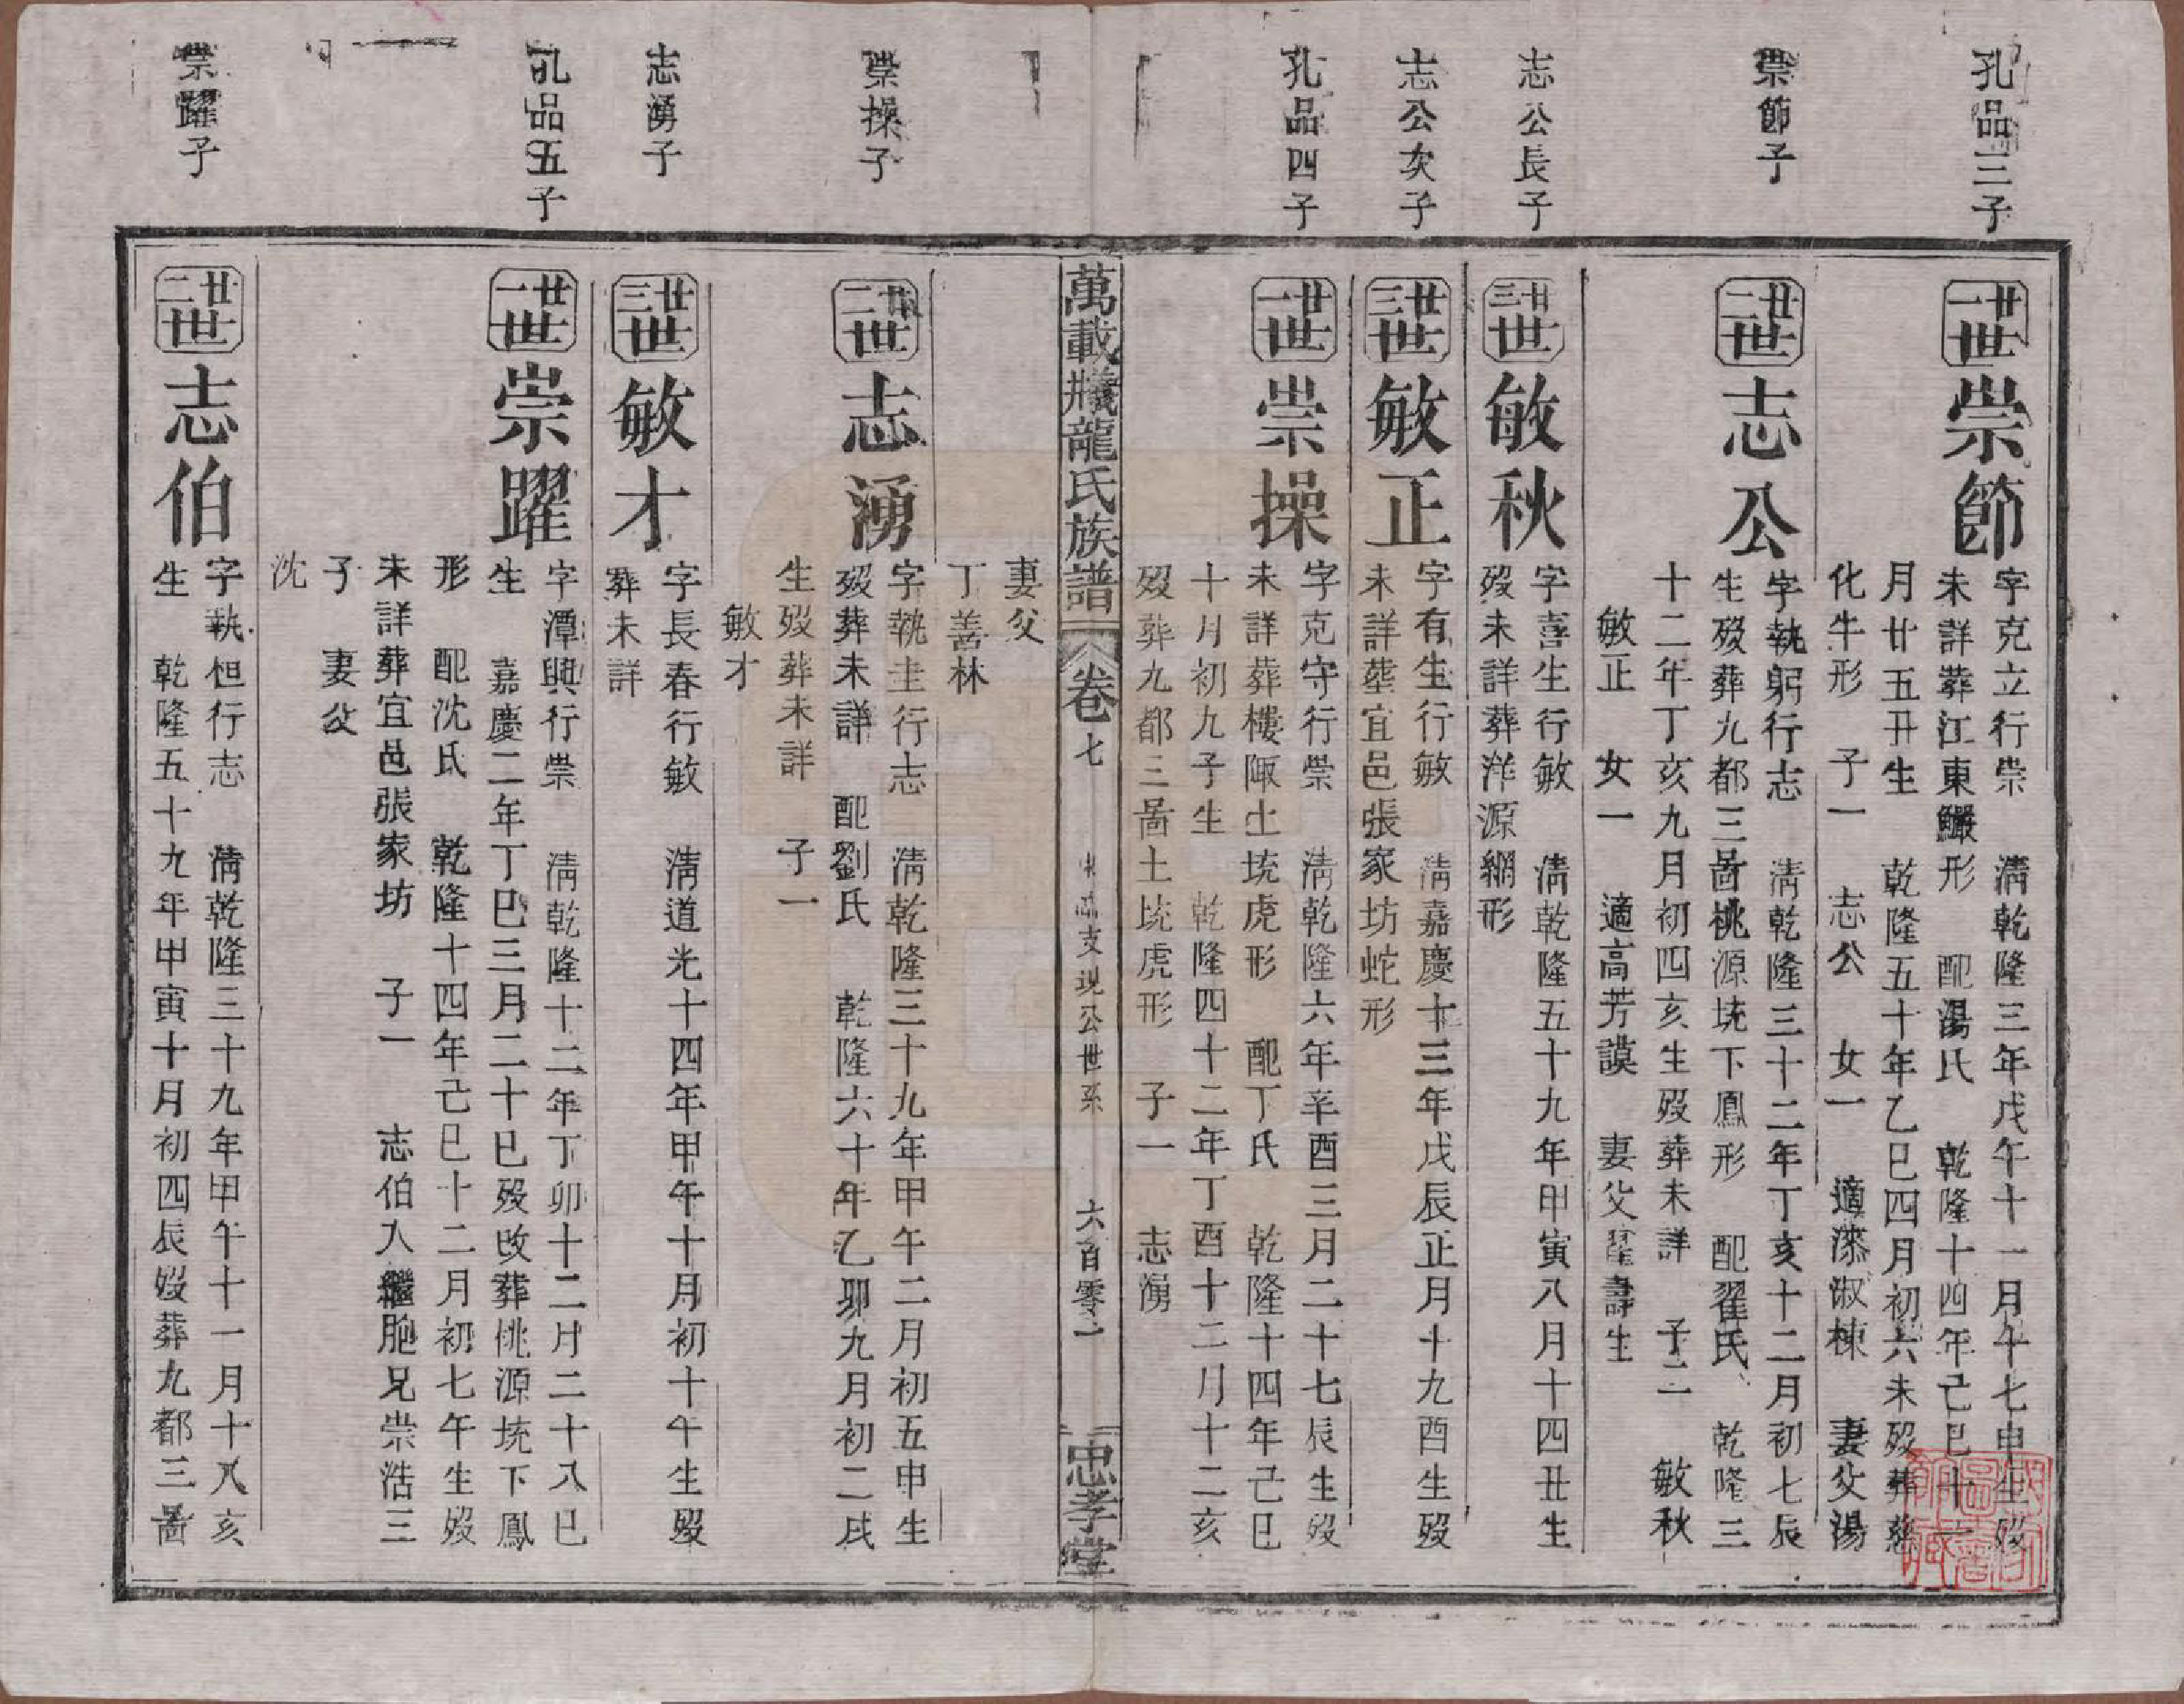 孔品三子
廿一世 崇節
字克立行崇 清乾隆三年戊午十一月午七申生歿
未詳葬江東鱖形 配湯氏 乾隆十四年己巳十一
月廿五丑生 乾隆五十年乙巳四月初六未歿葬
化牛形 子一 志公 女一 適漆淑棟 妻父湯
崇節子
廿二世 志公
字執躬行志 清乾隆三十二年丁亥十二月初七辰
生歿葬九都三啚桃源垅下鳳形 配翟氏 乾隆三
十二年丁亥九月初四亥生歿葬未詳 子二 敏秋
敏正 女一 適高芳謨 妻父翟壽生
志公長子
廿三世 敏秋
字喜生行敏 清乾隆五十九年甲寅八月十四丑生
歿未詳葬洋源網形
志公次子
廿三世 敏正
字有生行敏 清嘉慶十三年戊辰正月十九酉生歿
未詳塟宜邑張家坊蛇形
孔品四子
廿一世 崇操
字克守行崇 清乾隆六年辛酉三月二十七辰生歿
未詳葬樓陬土垅虎形 配丁氏 乾隆十四年己巳
十月初九子生 乾隆四十二年丁酉十二月十二亥
歿葬九都三啚土垅虎形 子一 志湧
萬載牂龍氏族譜 卷七 支現公世系 六百零一 忠孝堂
妻父
丁善林
崇操子
廿二世 志湧
字執圭行志 清乾隆三十九年甲午二月初五申生
歿葬未詳 配劉氏 乾隆六十年乙卯九月初二戌
生歿葬未詳 子一
敏才
志湧子
廿三世 敏才
字長春行敏 清道光十四年甲午十月初十午生歿
葬未詳
孔品五子
廿一世 崇躍
字潭興行崇 清乾隆十二年丁卯十二月二十八巳
生 嘉慶二年丁巳三月二十巳歿改葬桃源垅下鳳
形 配沈氏 乾隆十四年己巳十二月初七午生歿
未詳葬宜邑張家坊 子一 志伯入繼胞兄崇浩三
子 妻父
沈
崇躍子
廿二世 志伯
字執桓行志 清乾隆三十九年甲午十一月十八亥
生 乾隆五十九年甲寅十月初四辰歿葬九都三啚